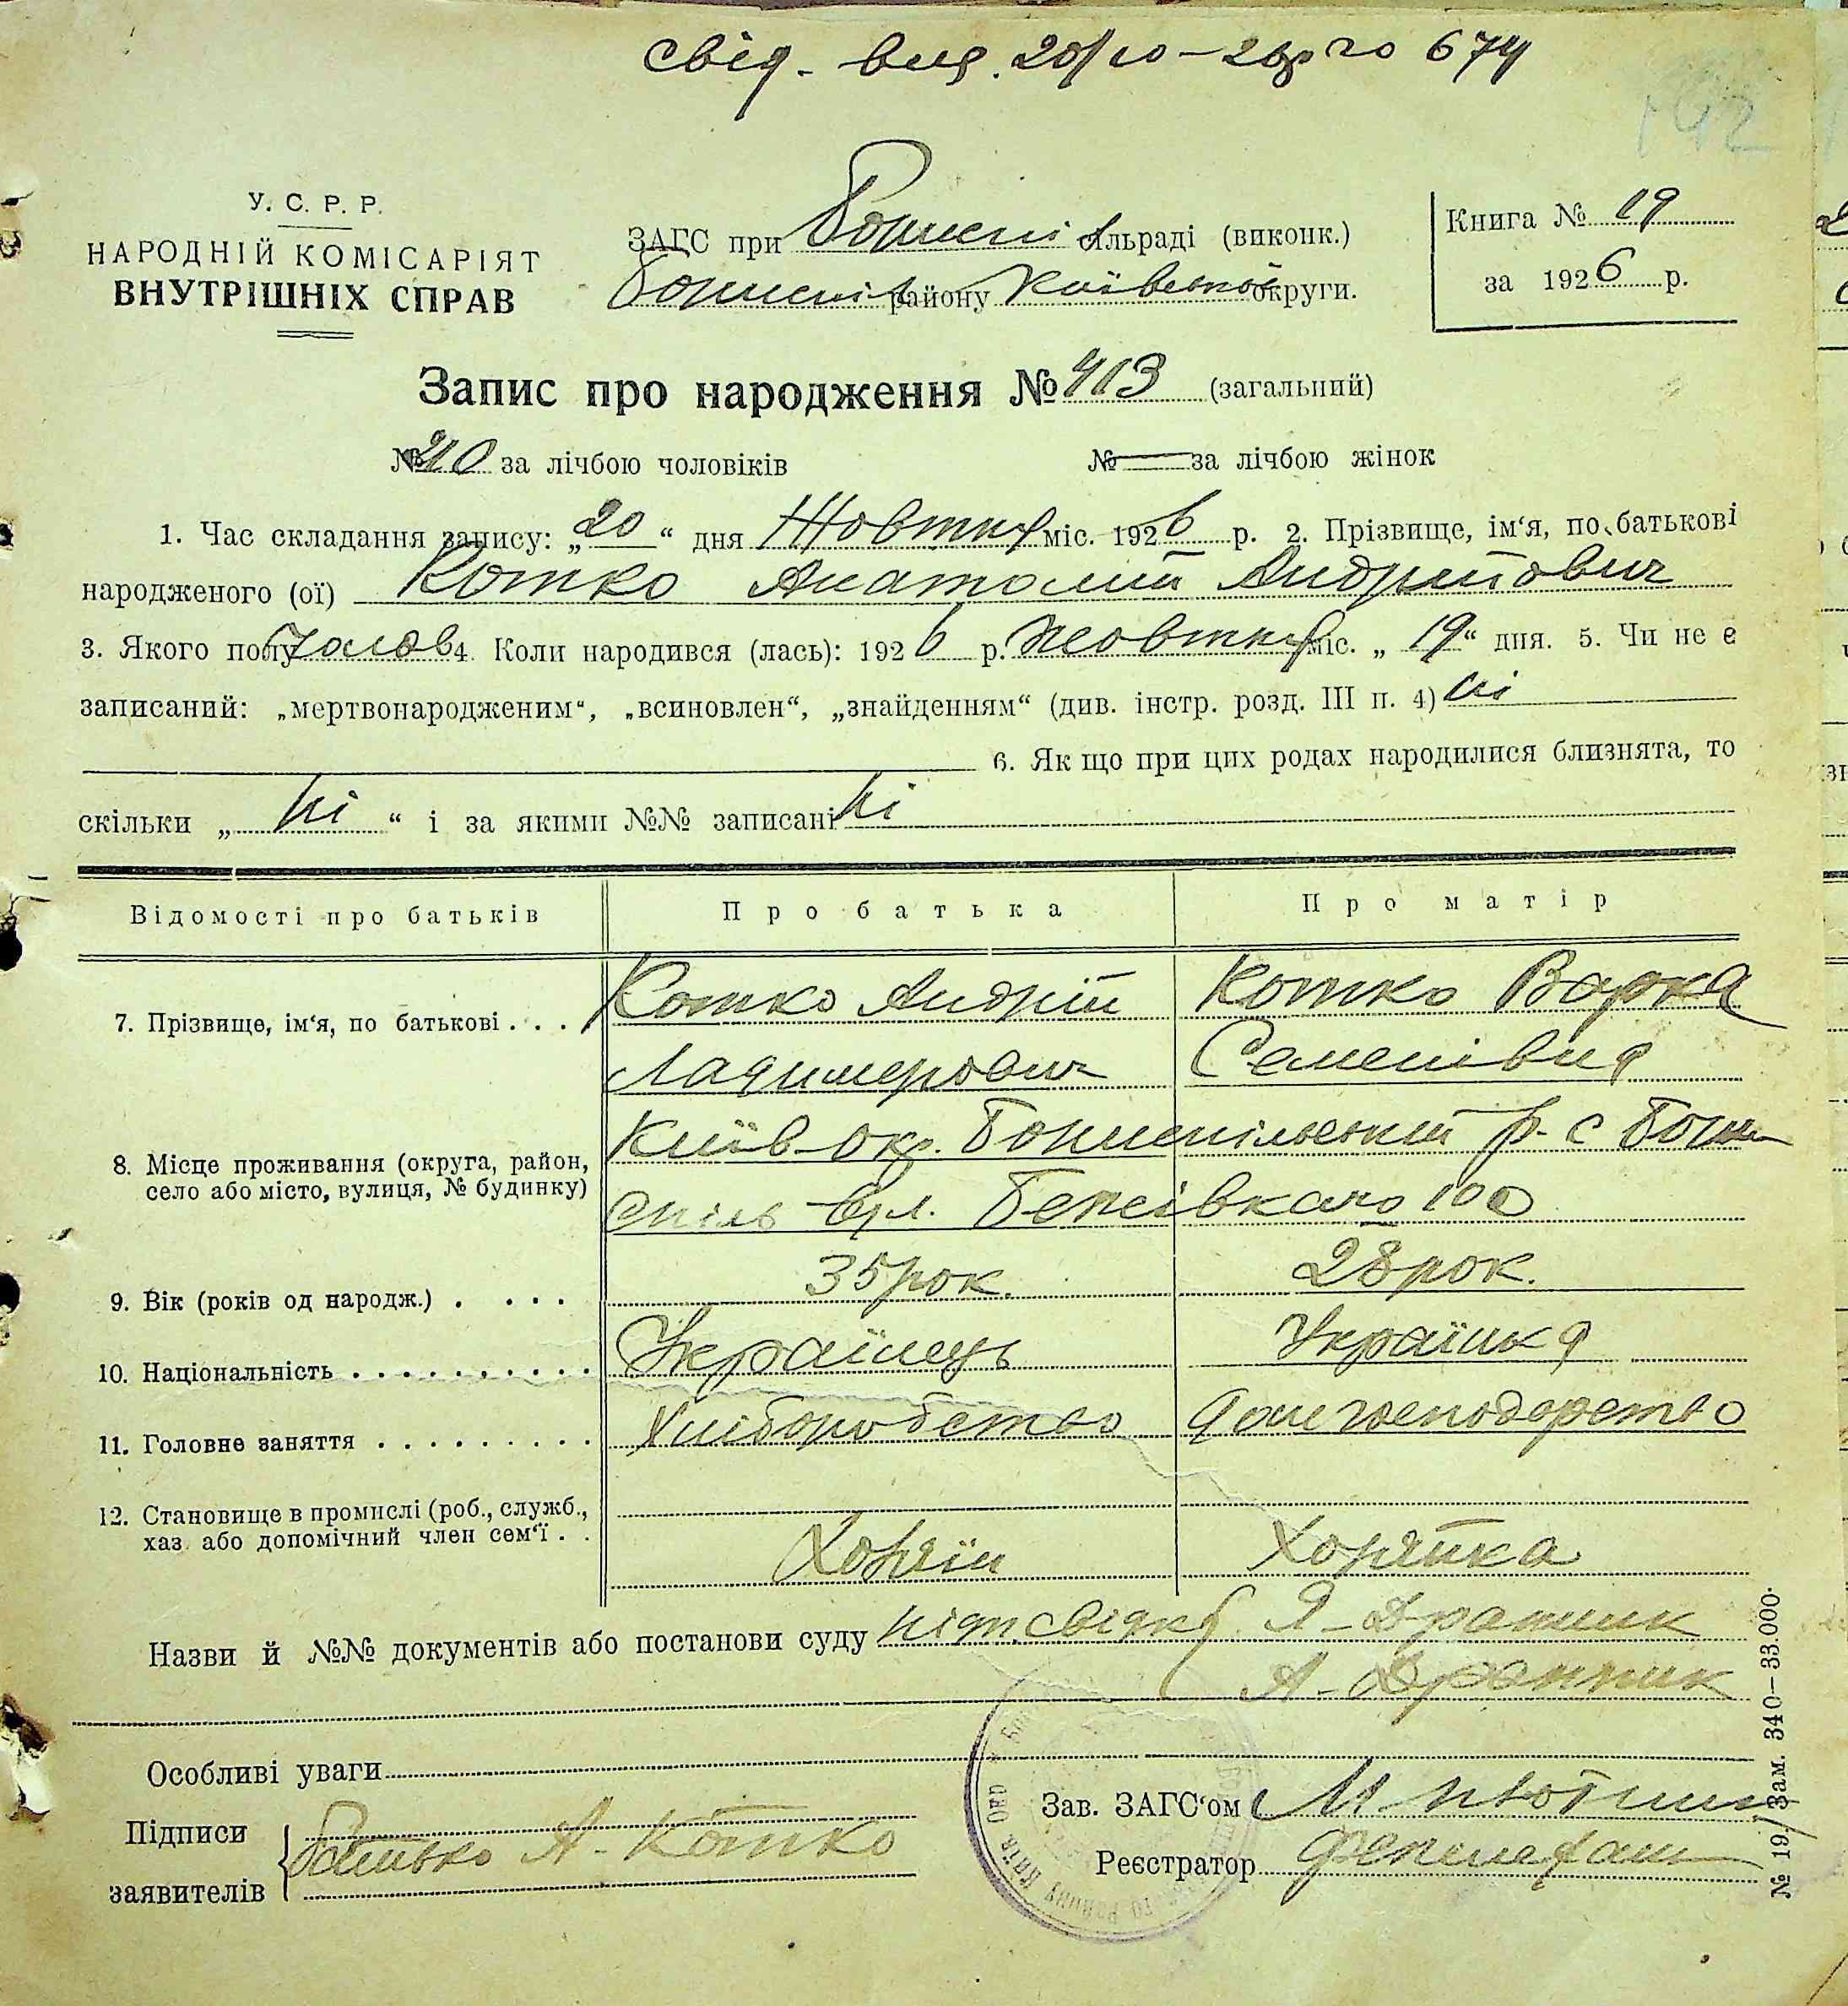 свід. вид. 20/10-26р го 674
У. С. Р. Р.
НАРОДНІЙ КОМІСАРІЯТ
ВНУТРІШНІХ СПРАВ
ЗАГС при Бориспі сільраді (виконк.)
Бориспіл району Київської округи.
Книга № 19
за 1926 р.
Запис про народження № 413 (загальний)
№ 210 за лічбою чоловіків № — за лічбою жінок
1. Час складання запису: „20“ дня Жовтня міс. 1926 р. 2. Прізвище, ім‘я, по батькові
народженого (ої) Котко Анатолій Андрійович
3. Якого полу чолов 4. Коли народився (лась): 1926 р. Жовтня міс. „19“ дня. 5. Чи не є
записаний: „мертвонародженим“, „всиновлен“, „знайденням“ (див. інстр. розд. III п. 4) ні
6. Як що при цих родах народилися близнята, то
скільки „ні“ і за якими №№ записані ні
Відомості про батьків Про батька Про матір
7. Прізвище, ім‘я, по батькові . . . Котко Андрій Котко Варка
Ладимерович Семенівна
8. Місце проживання (округа, район, Київ-окр. Бориспільський р. с Бори
село або місто, вулиця, № будинку) спіль вул. 100
9. Вік (років од народж.) . . . . 35 рок. 28 рок.
10. Національність . . . . . . . . . . Українець Українка
11. Головне заняття . . . . . . . . . Хліборобство дом господарство
12. Становище в промислі (роб., служб.,
хаз. або допомічний член сем‘ї . . Хозяїн Хозяйка
Назви й №№ документів або постанови суду підп. свідкб. Я-Дратник
А-Дратник
Особливі уваги
Підписи
заявителів
батько А-Котко
Зав. ЗАГС‘ом
Реєстратор
№ 19/Зам. 340—33.000.